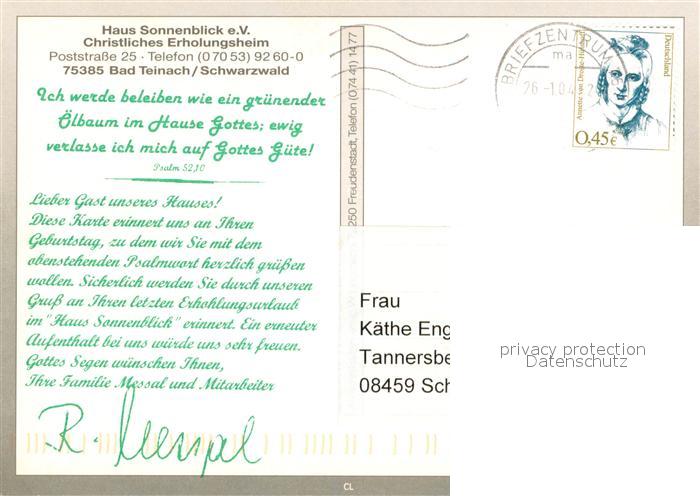 Haus Sonnenblick e.V.
Christliches Erholungsheim
Poststraße 25 · Telefon (0 70 53) 92 60-0
75385 Bad Teinach / Schwarzwald
Ich werde beleiben wie ein grünender
Ölbaum im Hause Gottes; ewig
verlasse ich mich auf Gottes Güte!
Psalm 52,10
Lieber Gast unseres Hauses!
Diese Karte erinnert uns an Ihren
Geburtstag, zu dem wir Sie mit dem
obenstehenden Psalmwort herzlich grüßen
wollen. Sicherlich werden Sie durch unseren
Gruß an Ihren letzten Erhohlungsurlaub
im "Haus Sonnenblick" erinnert. Ein erneuter
Aufenthalt bei uns würde uns sehr freuen.
Gottes Segen wünschen Ihnen,
Ihre Familie Messal und Mitarbeiter
R. Messal
250 Freudenstadt, Telefon (0 74 41) 14 77
BRIEFZENTRUM
ma
26.-1.04
Annette von Droste-Hülshoff
Deutschland
0,45€
Frau
Käthe Eng
Tannersbe
08459 Sch
privacy protection
Datenschutz
CL